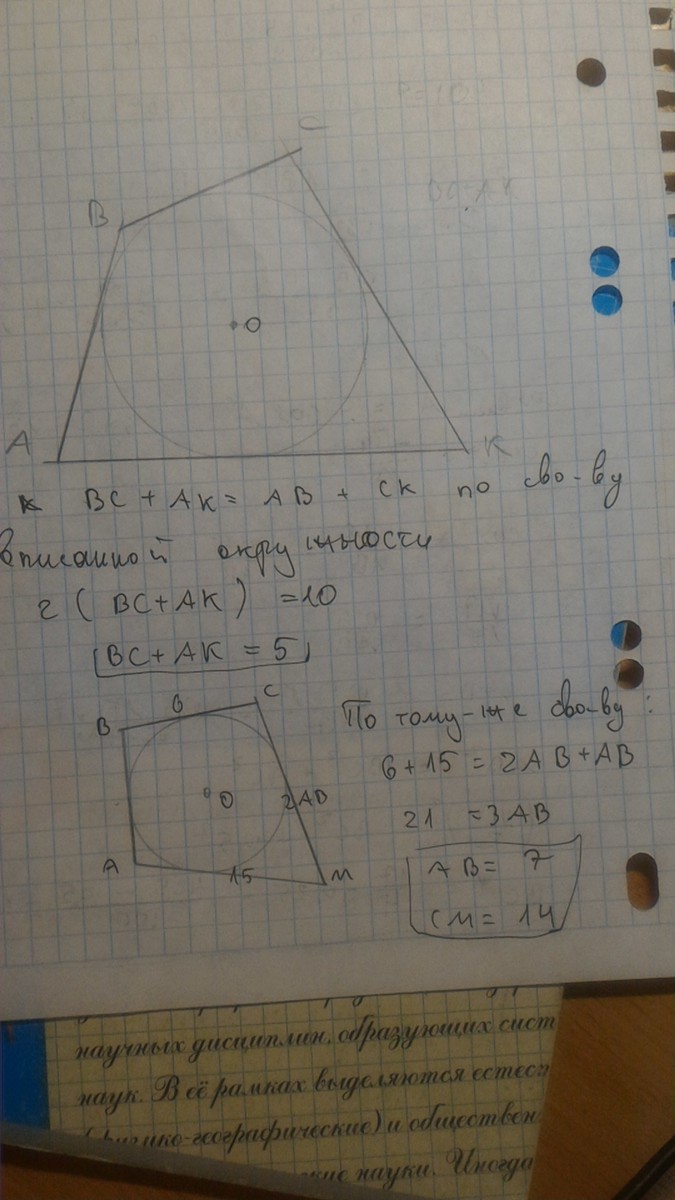 C
B
O
A
K
BC + AK = AB + CK по сво-ву
вписанной окружности
2 ( BC + AK ) = 10
BC + AK = 5
C
6
B
По тому-же сво-ву :
6 + 15 = 2AB + AB
O
2AB
21 = 3AB
A
15
M
AB = 7
CM = 14
научных дисциплин, образующих сист
наук. В её рамках выделяются естест
физико-географические) и обществен
науки. Иногда